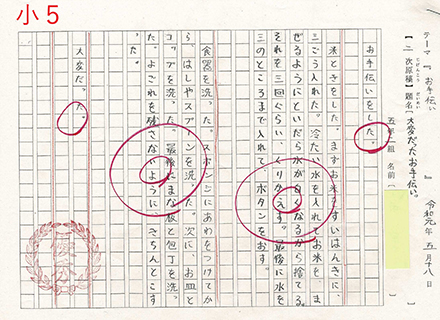 小5
テーマ『お手伝い』 令和元年 五月十八日
【二次原稿】題名「大変だったお手伝い。」
五年 組 名前〔 〕
お手伝いをした。
米とぎをした。まずお米をすいはんきに、
三ごう入れた。冷たい水を入れてお米を、ま
ぜるようにといだら水が白くなるから捨てる。
それを三回ぐらい、くりかえす。最後に水を
三のところまで入れて、ボタンをおす。
食器を洗った。スポンジにあわをつけてか
ら、はしやスプーンを洗った。次に、お皿と
コップを洗った。最後にまな板と包丁を洗っ
た。よごれを残さないように、きちんとこす
った。
大変だった。